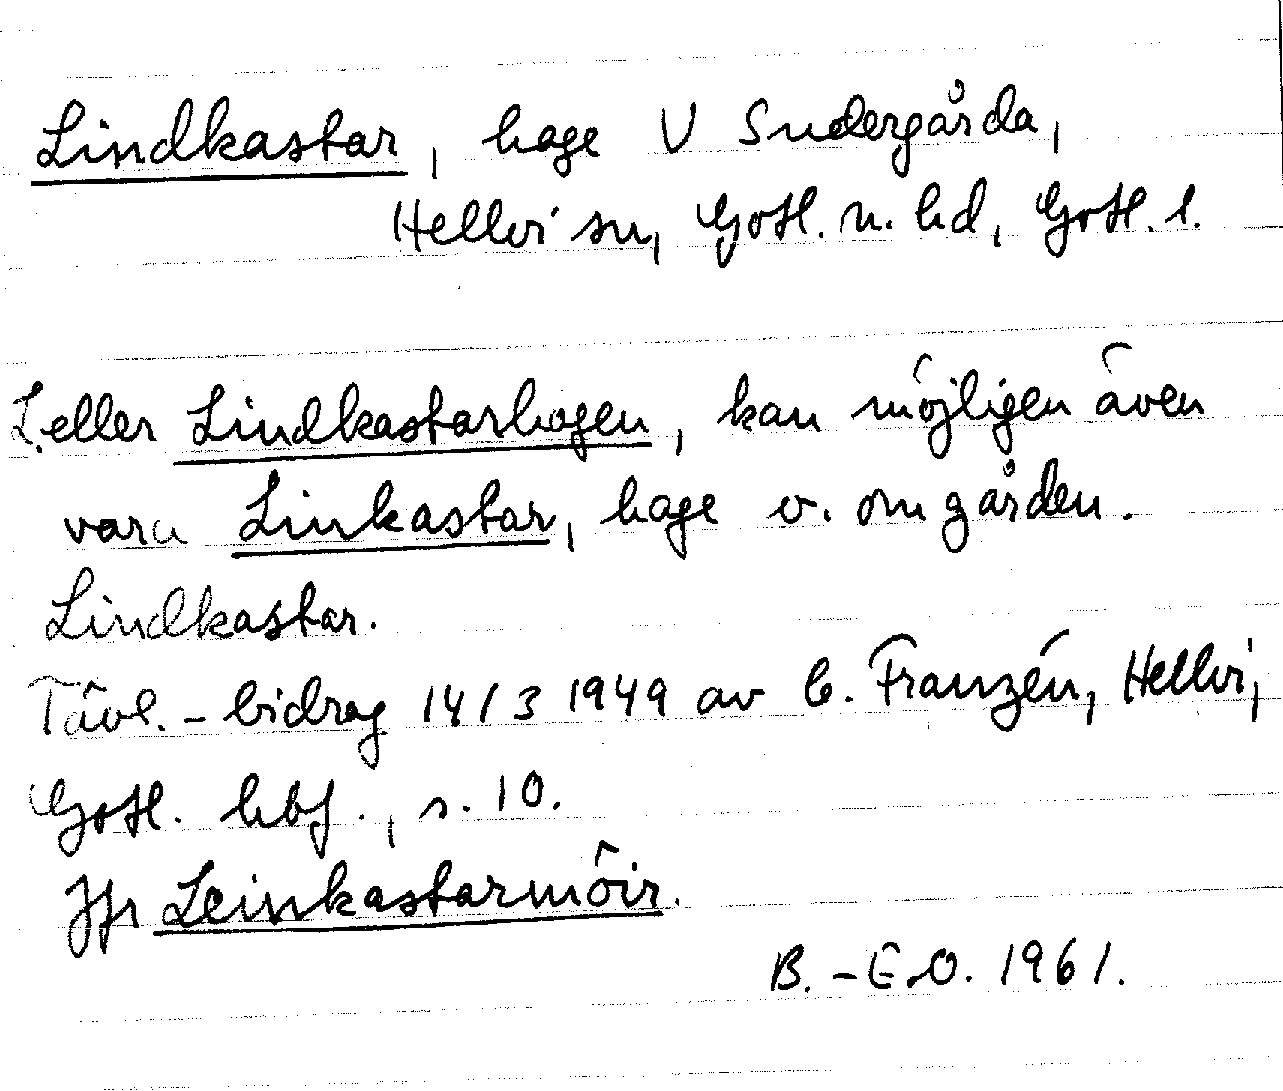 Lindkastar, hage V Sudergårda,
Hellvi sn, Gotl. n. hd, Gotl. l.
L. eller Lindkastarhagen, kan möjligen även
vara Linkastar, hage v. om gården.
Lindkastar.
Tävl. - bidrag 14/3 1949 av C. Franzén, Hellvi,
Gotl. hbf., s. 10.
Jfr Leinkastarmöir.
B. - E. O. 1961.